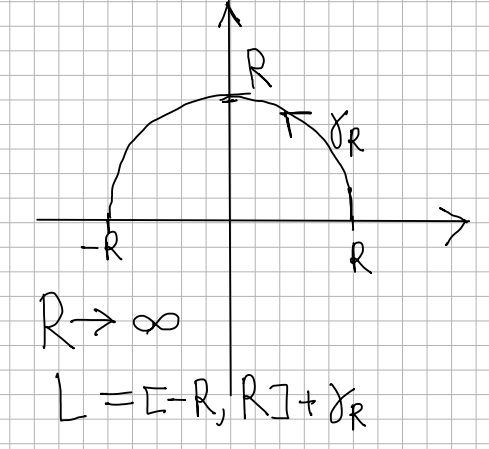 R
γR
-R
R
R → ∞
L = [-R, R] + γR